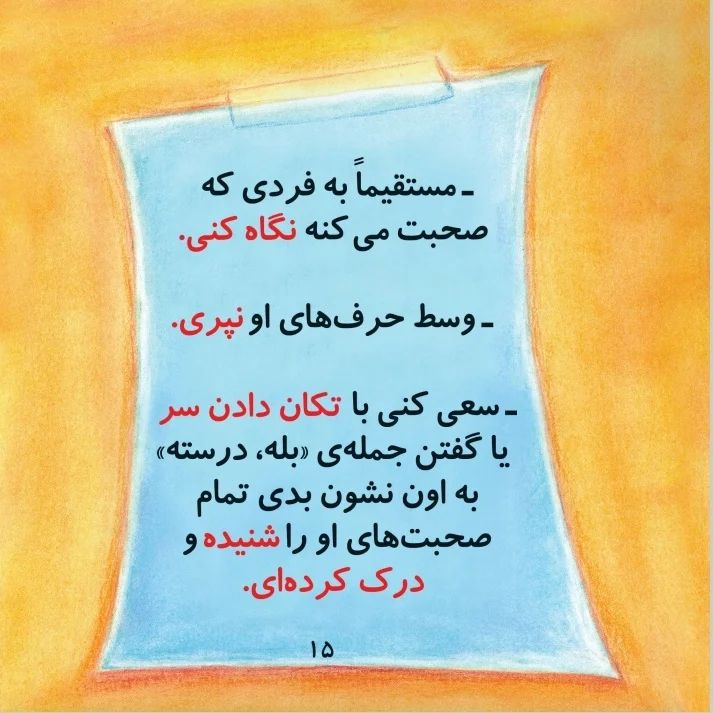 ـ مستقیماً به فردی که
صحبت می کنه نگاه کنی.
ـ وسط حرف‌های او نپری.
ـ سعی کنی با تکان دادن سر
یا گفتن جمله‌ی «بله، درسته»
به اون نشون بدی تمام
صحبت‌های او را شنیده و
درک کرده‌ای.
۱۵